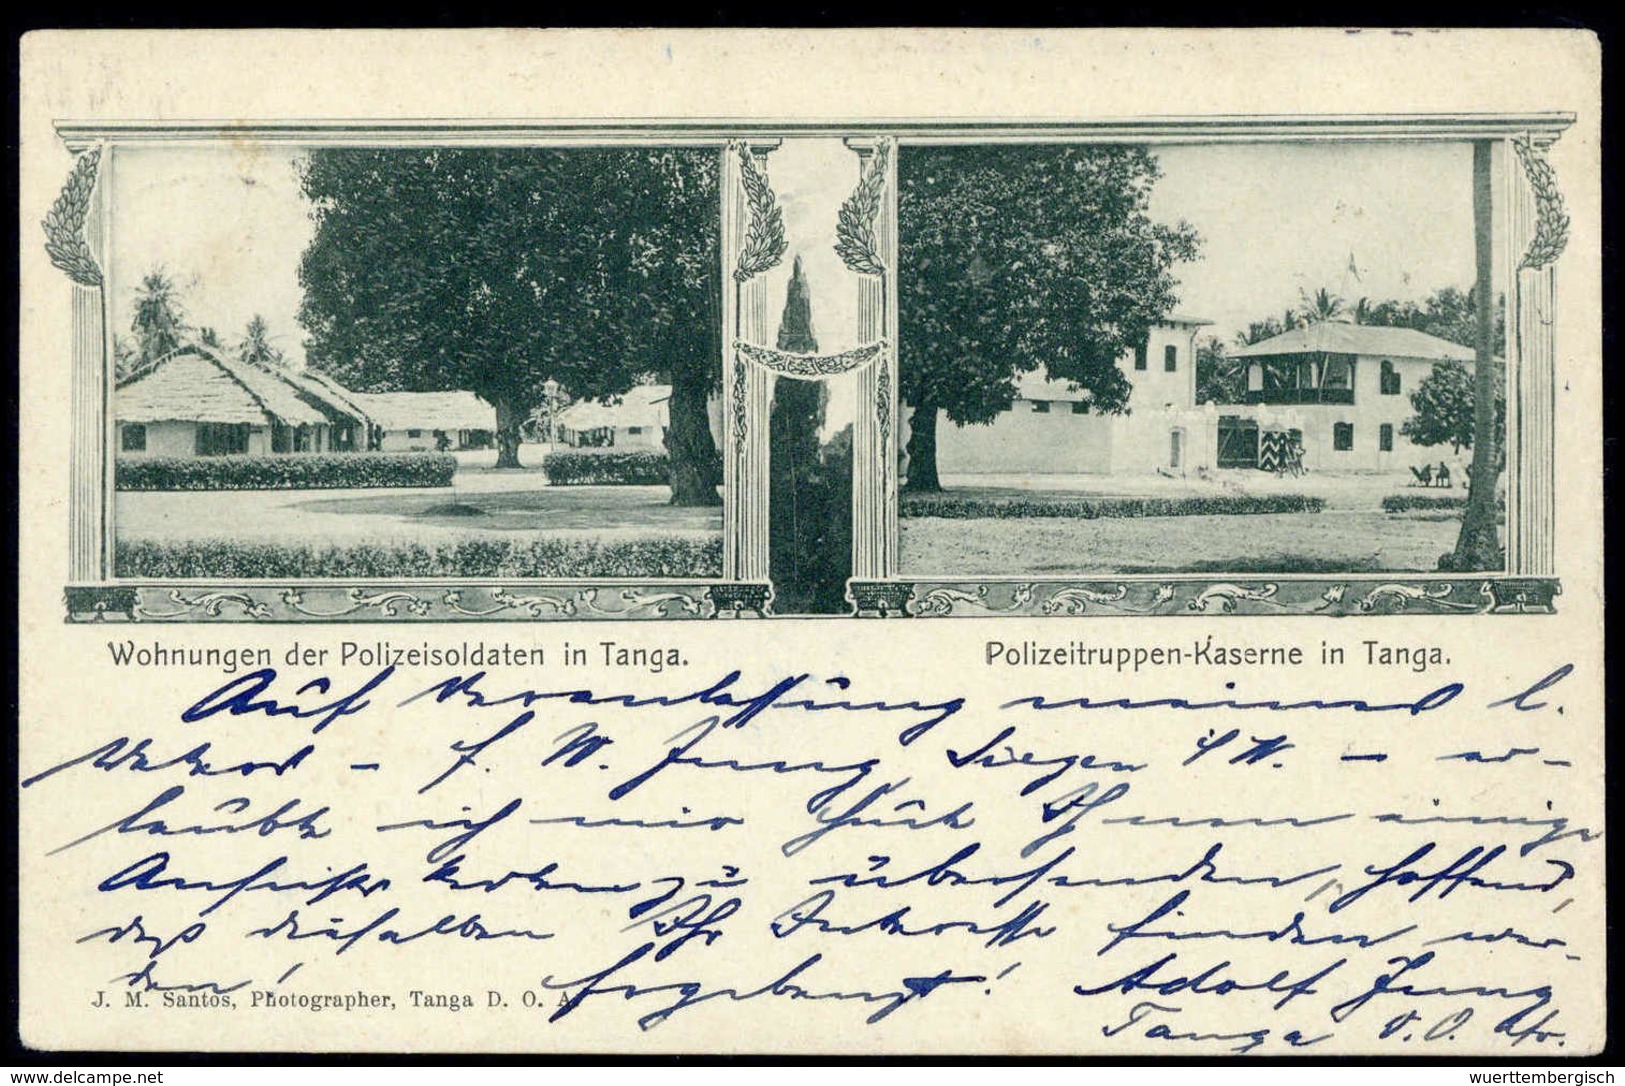 Wohnungen der Polizeisoldaten in Tanga.
Polizeitruppen-Kaserne in Tanga.
Auf Veranlassung meines l.
Vaters – f. W. Jung, Siegen i/W. – er-
laube ich mir heute Ihnen einige
Ansichtskarten zu übersenden, hoffend,
daß dieselben Ihr Interesse finden wer-
den!
Ergebenst! Adolf Jung
Tanga D. O. Afr.
J. M. Santos, Photographer, Tanga D. O. A.
© delcampe.net
wuerttembergisch